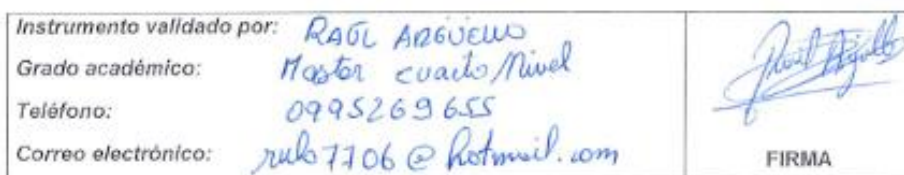 Instrumento validado por: RAÚL ARGÜELLO
Grado académico: Master cuarto Nivel
Teléfono: 0995269655
Correo electrónico: rulo7706@hotmail.com
FIRMA